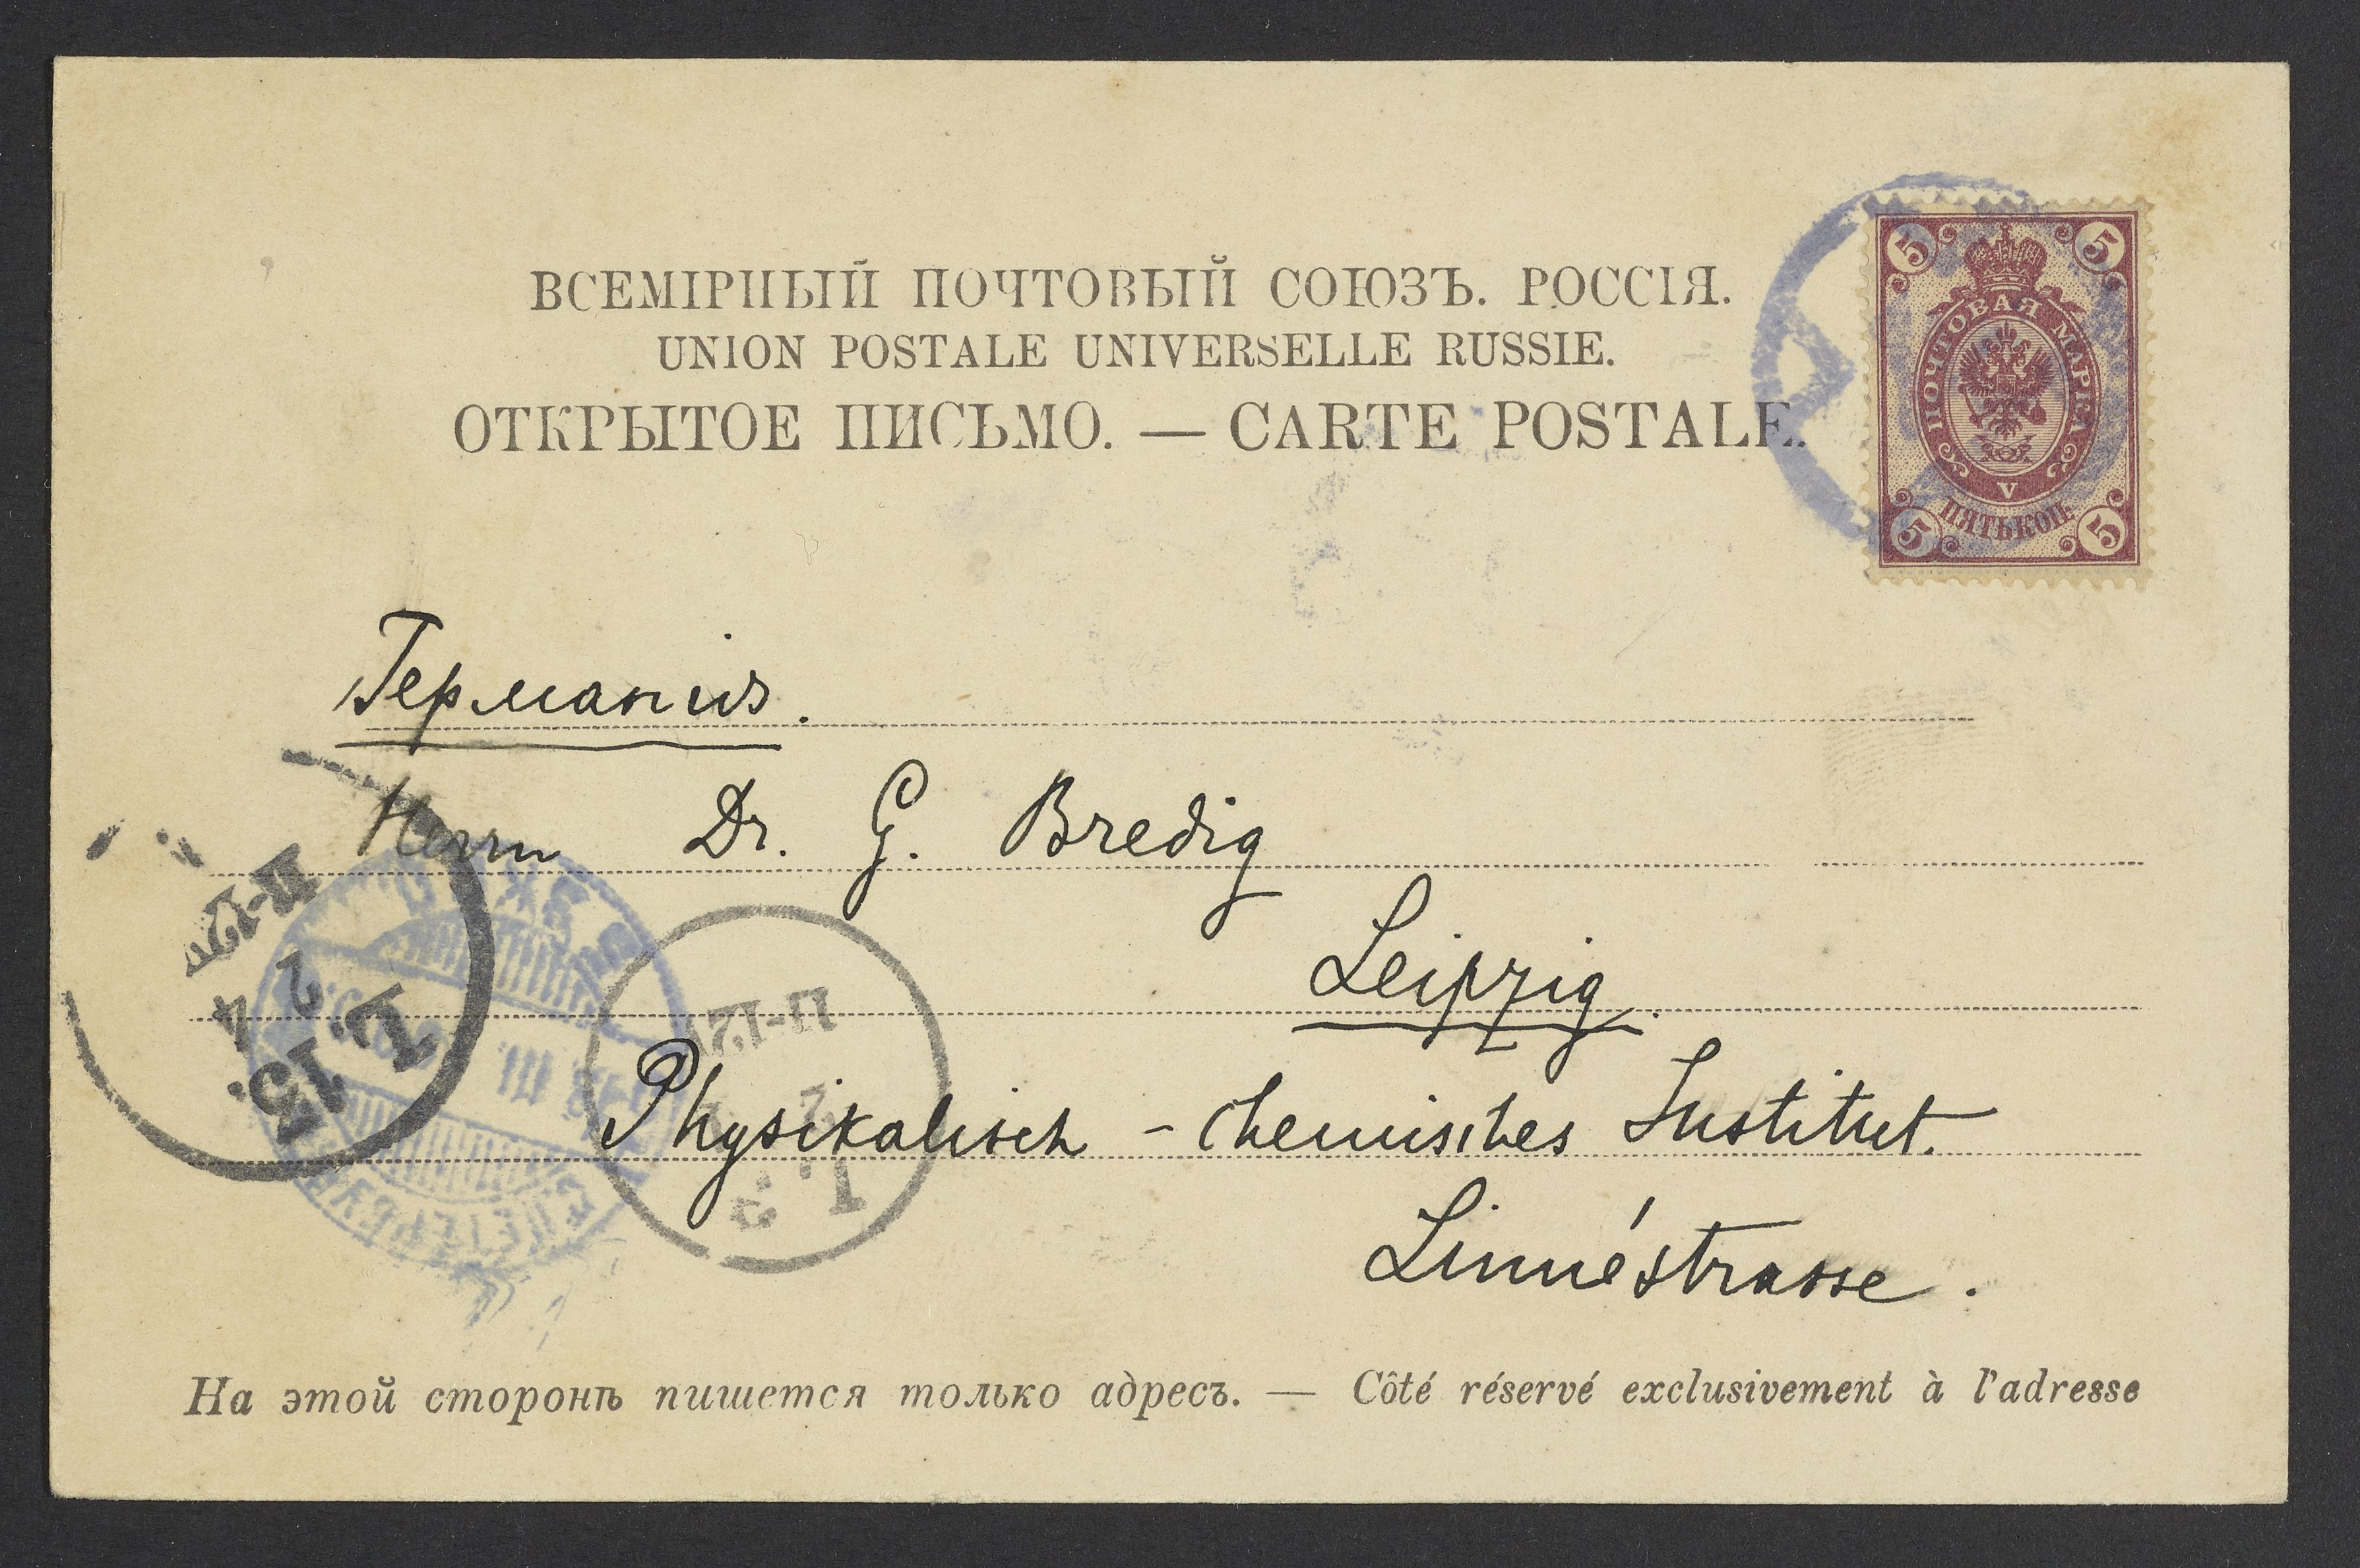 ВСЕМІРНЫЙ ПОЧТОВЫЙ СОЮЗЪ. РОССІЯ.
UNION POSTALE UNIVERSELLE RUSSIE.
ОТКРЫТОЕ ПИСЬМО. — CARTE POSTALE.
5 5
ПОЧТОВАЯ МАРКА
V
ПЯТЬ КОП.
5 5
Германія.
Herrn Dr. G. Bredig
Leipzig.
Physikalisch - chemisches Institut.
Linnéstrasse.
11-12
2 4
L. 15.
11-12
2
L. 3
На этой сторонѣ пишется только адресъ. — Côté réservé exclusivement à l'adresse